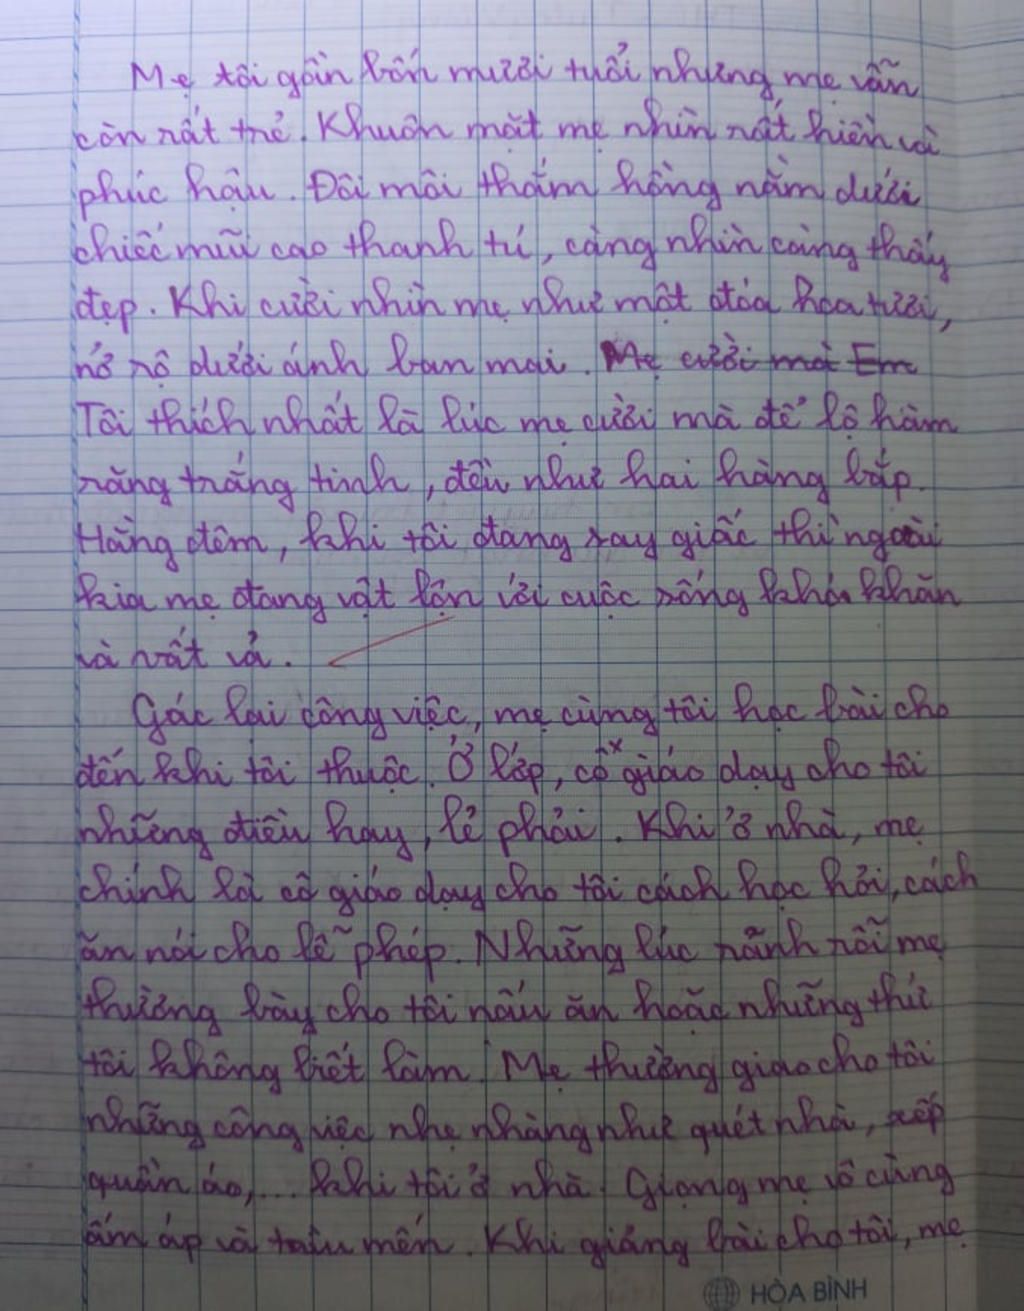 Mẹ tôi gần bốn mươi tuổi nhưng mẹ vẫn
còn rất trẻ. Khuôn mặt mẹ nhìn rất hiền và
phúc hậu. Đôi môi thắm hồng nằm dưới
chiếc mũi cao thanh tú, càng nhìn càng thấy
đẹp. Khi cười nhìn mẹ như một đóa hoa tươi,
nở rộ dưới ánh ban mai. Mẹ cười mà Em
Tôi thích nhất là lúc mẹ cười mà để lộ hàm
răng trắng tinh, đều như hai hàng bắp.
Hằng đêm, khi tôi đang say giấc thì ngoài
kia mẹ đang vật lộn với cuộc sống khó khăn
và vất vả.
Gác lại công việc, mẹ cùng tôi học bài cho
đến khi tôi thuộc. Ở lớp, cô giáo dạy cho tôi
những điều hay, lẽ phải. Khi ở nhà, mẹ
chính là cô giáo dạy cho tôi cách học hỏi, cách
ăn nói cho lễ phép. Những lúc rãnh rỗi mẹ
thường bày cho tôi nấu ăn hoặc những thứ
tôi không biết làm. Mẹ thường giao cho tôi
những công việc nhẹ nhàng như quét nhà, xếp
quần áo,... khi tôi ở nhà. Giọng mẹ vô cùng
ấm áp và trìu mến. Khi giảng bài cho tôi, mẹ
HÒA BÌNH